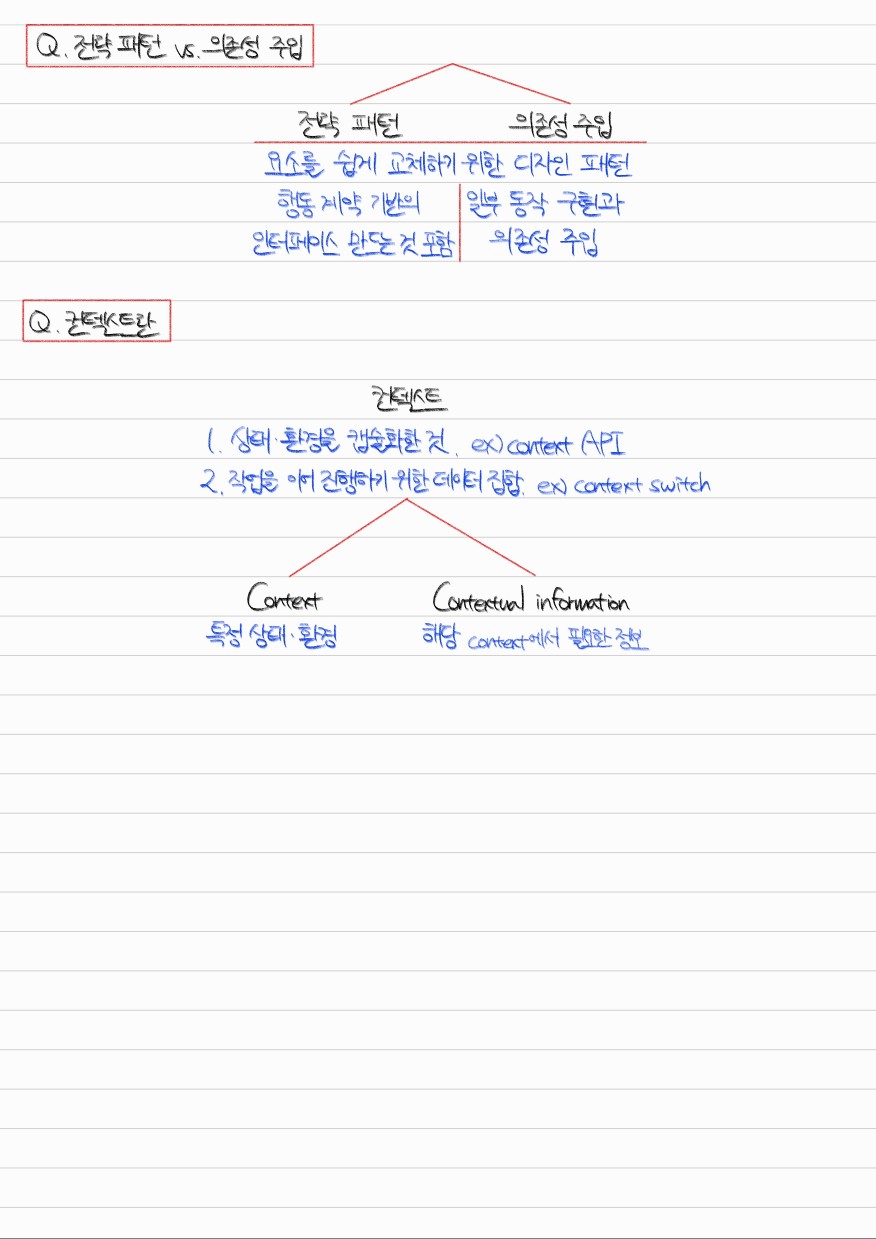 Q. 전략 패턴 vs. 의존성 주입
전략 패턴 의존성 주입
요소를 쉽게 교체하기 위한 디자인 패턴
행동 계약 기반의 일부 동작 구현과
인터페이스 만드는 것 포함 의존성 주입
Q. 컨텍스트란
컨텍스트
1. 상태·환경을 캡슐화한 것. ex) context API
2. 작업을 이어 진행하기 위한 데이터 집합. ex) context switch
Context Contextual information
특정 상태·환경 해당 context에서 필요한 정보